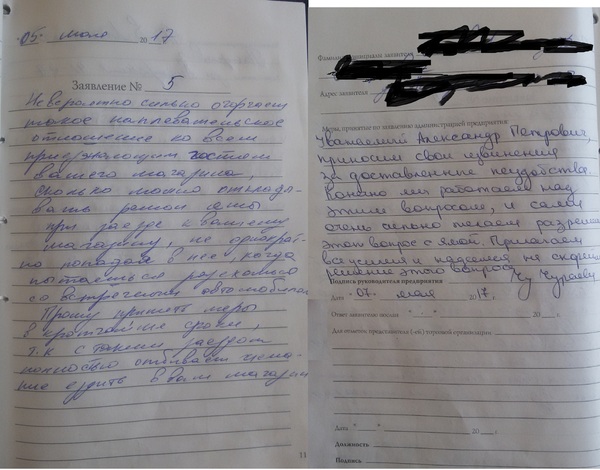 "05" июля 2017
Заявление № 5
Невероятно сильно огорчает
такое наплевательское
отношение ко всем
приезжающим гостям
вашего магазина,
сколько можно отклады-
вать ремонт ямы
при заезде к вашему
магазину, не однократ-
но попадал в нее, когда
пытаешься разъехаться
со встречным автомобилем
Прошу принять меры
в кротчайшие сроки,
т.к с таким заездом
полностью отбивает жела-
ние ездить в ваш магазин
11
Адрес заявителя
Меры, принятые по заявлению администрацией предприятия:
Уважаемый Александр Петрович,
приносим свои извинения
за доставленные неудобства.
Конечно мы работаем над
этим вопросом, и сами
очень сильно желаем разреши
этот вопрос с ямой. Прилагаем
все усилия и надеемся на скорое
решение этого вопроса
Подпись руководителя предприятия
Дата "07" 2017 г.
Ответ заявителю послан " " 20 г.
Для отметок представителя (-ей) торговой организации:
Дата " " 20 г.
Должность
Подпись